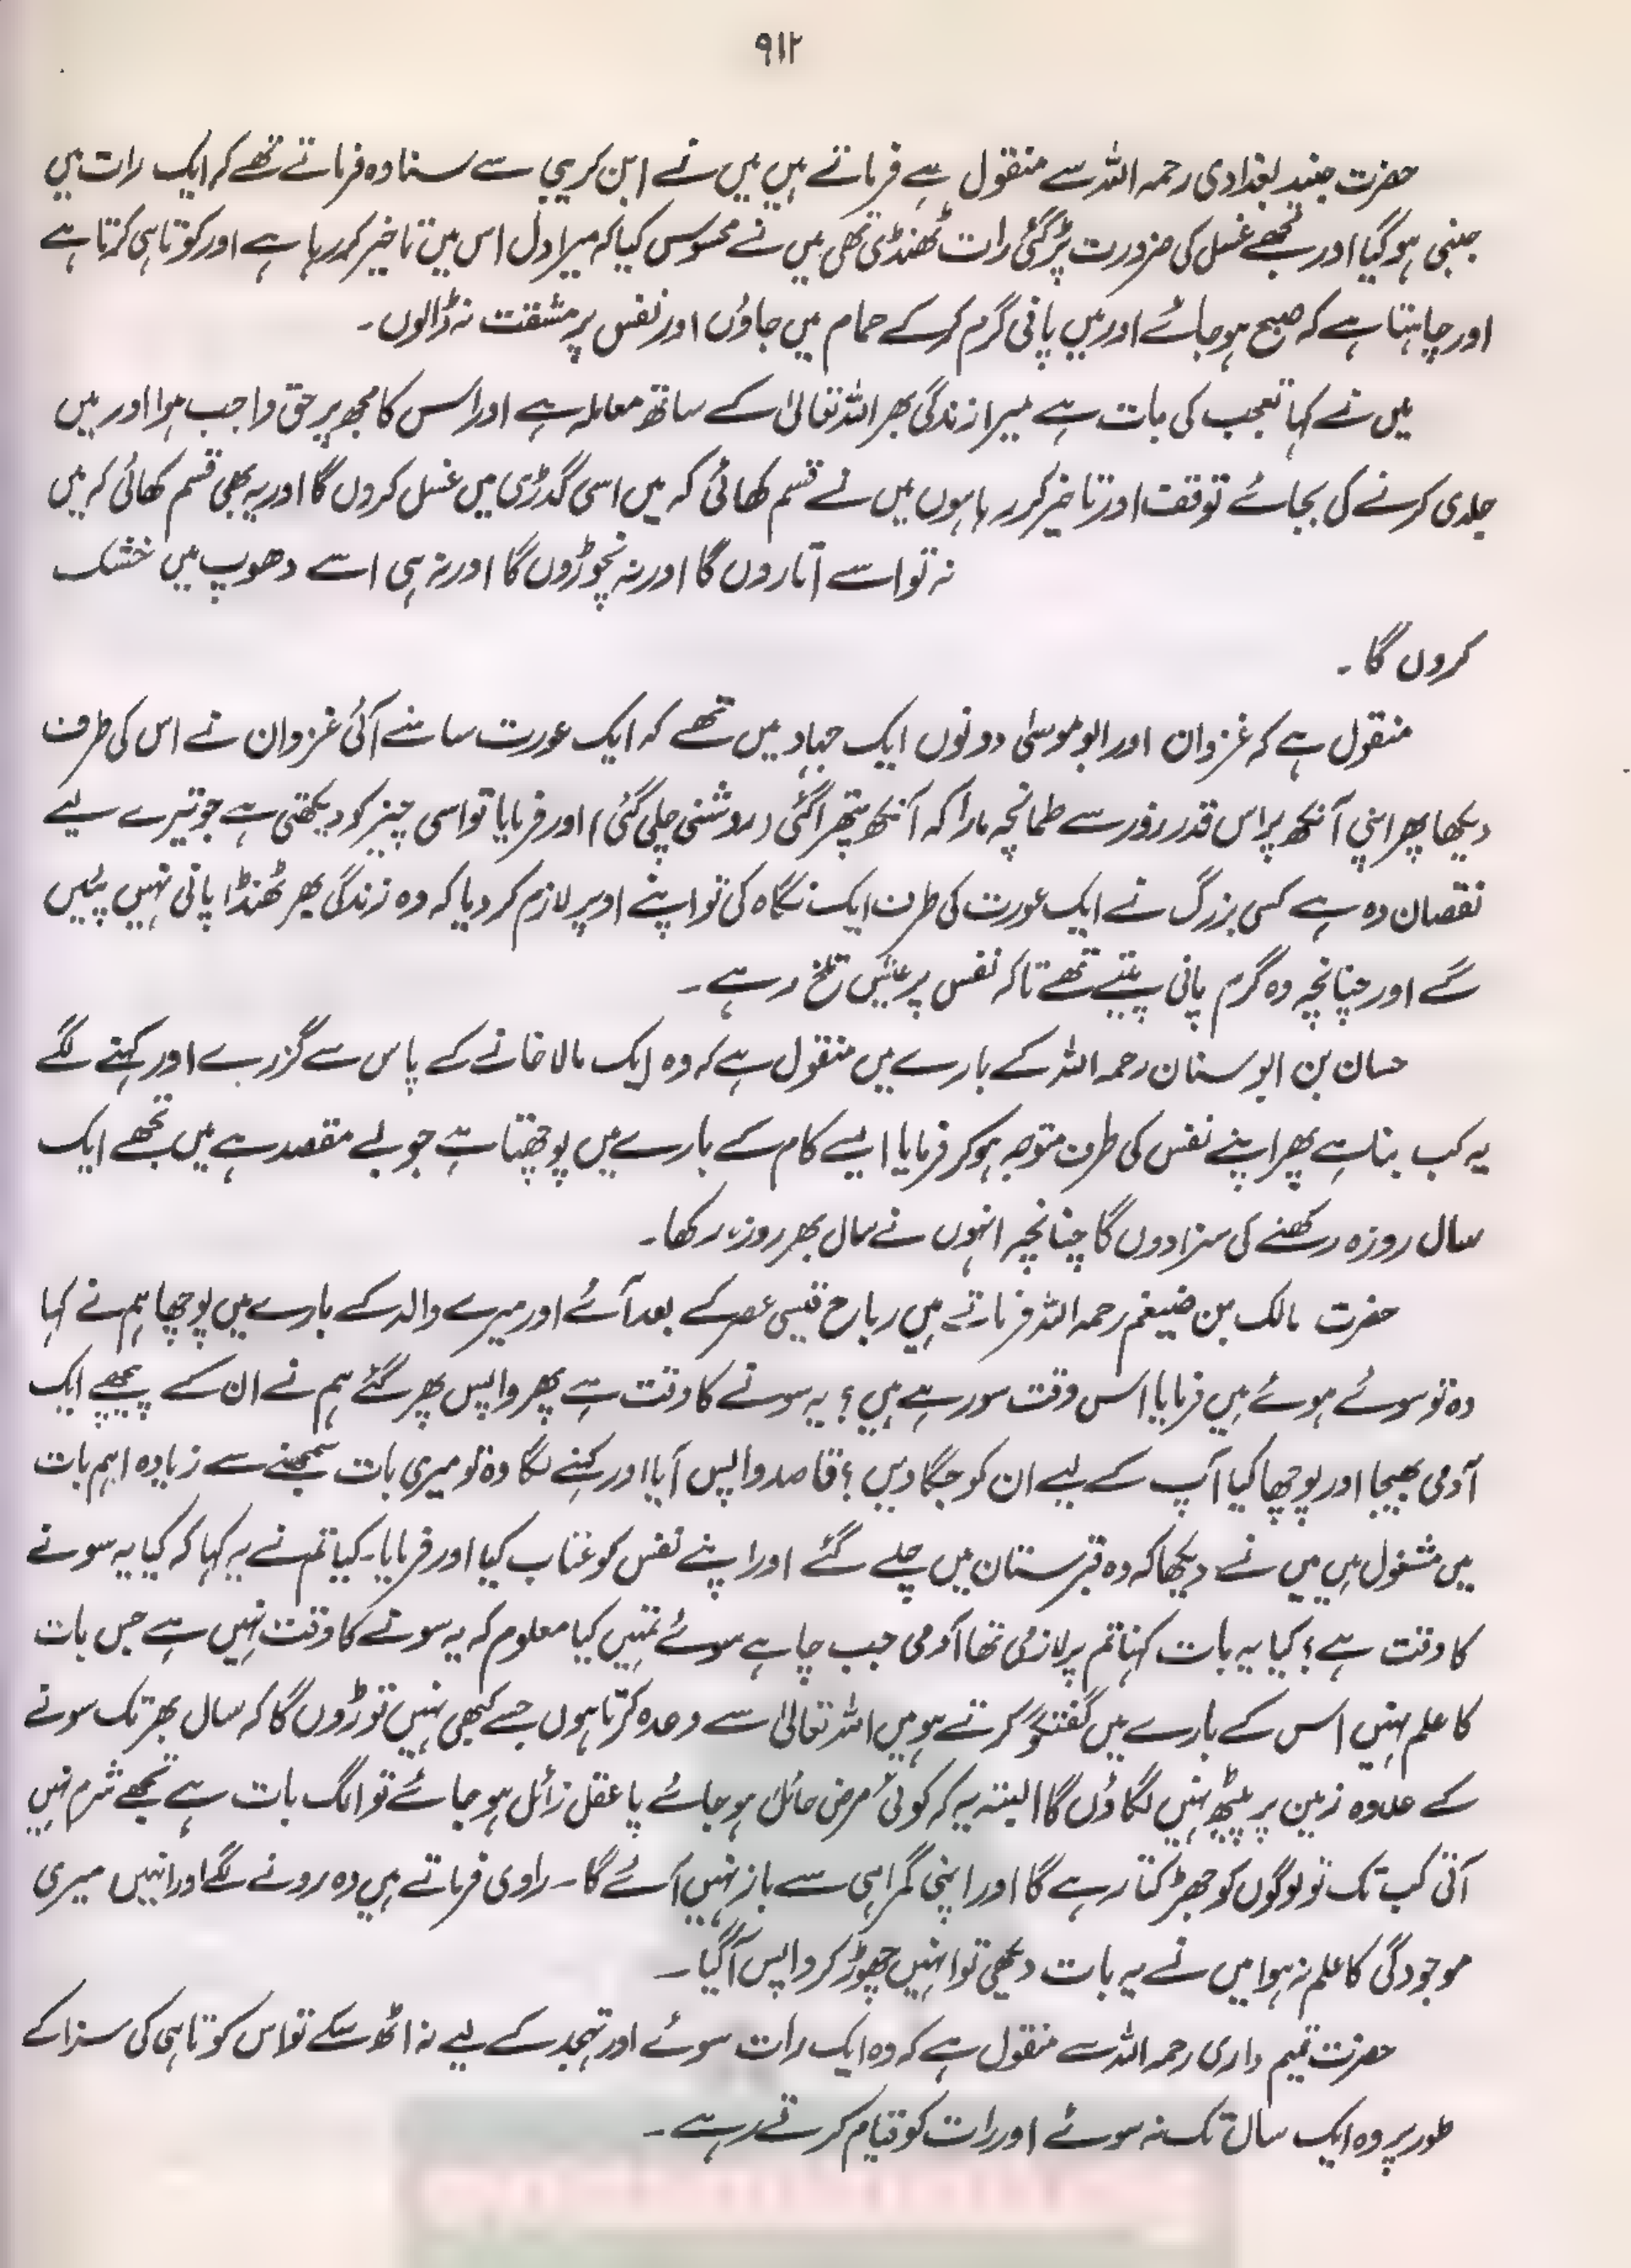 ۹۱۲
حضرت جنید بغدادی رحمہ اللہ سے منقول ہے فرماتے ہیں میں نے ابن کریبی سے سنا وہ فرماتے تھے کہ ایک رات میں
جنبی ہو گیا اور مجھے غسل کی ضرورت پڑ گئی رات ٹھنڈی تھی میں نے محسوس کیا کہ میرا دل اس میں تاخیر کر رہا ہے اور کوتاہی کرتا ہے
اور چاہتا ہے کہ صبح ہو جائے اور میں پانی گرم کر کے حمام میں جاؤں اور نفس پر مشقت نہ ڈالوں۔
میں نے کہا تعجب کی بات ہے میرا زندگی بھر اللہ تعالیٰ کے ساتھ معاملہ ہے اور اس کا مجھ پر حق واجب ہوا اور میں
جلدی کرنے کی بجائے توقف اور تاخیر کر رہا ہوں میں نے قسم کھائی کہ میں اسی گدڑی میں غسل کروں گا اور یہ بھی قسم کھائی کہ میں
نہ تو اسے اتاروں گا اور نہ نچوڑوں گا اور نہ ہی اسے دھوپ میں خشک
کروں گا۔
منقول ہے کہ غزوان اور ابو موسیٰ دونوں ایک جہاد میں تھے کہ ایک عورت سامنے آئی غزوان نے اس کی طرف
دیکھا پھر اپنی آنکھ پر اس قدر زور سے طمانچہ مارا کہ آنکھ پتھرا گئی (روشنی چلی گئی) اور فرمایا تو اسی چیز کو دیکھتی ہے جو تیرے لیے
نقصان دہ ہے کسی بزرگ نے ایک عورت کی طرف ایک نگاہ کی تو اپنے اوپر لازم کر دیا کہ وہ زندگی بھر ٹھنڈا پانی نہیں پئیں
گے اور چنانچہ وہ گرم پانی پیتے تھے تاکہ نفس پر عیش تلخ رہے۔
حسان بن ابو سنان رحمہ اللہ کے بارے میں منقول ہے کہ وہ ایک بالا خانے کے پاس سے گزرے اور کہنے لگے
یہ کب بنا ہے پھر اپنے نفس کی طرف متوجہ ہو کر فرمایا ایسے کام کے بارے میں پوچھتا ہے جو بے مقصد ہے میں تجھے ایک
سال روزہ رکھنے کی سزا دوں گا چنانچہ انہوں نے سال بھر روزہ رکھا۔
حضرت مالک بن ضیغم رحمہ اللہ فرماتے ہیں رباح قیسی عصر کے بعد آئے اور میرے والد کے بارے میں پوچھا ہم نے کہا
وہ تو سوئے ہوئے ہیں فرمایا اس وقت سو رہے ہیں؟ یہ سونے کا وقت ہے پھر واپس پھر گئے ہم نے ان کے پیچھے ایک
آدمی بھیجا اور پوچھا کیا آپ کے لیے ان کو جگا دیں؟ قاصد واپس آیا اور کہنے لگا وہ تو میری بات سمجھنے سے زیادہ اہم بات
میں مشغول ہیں میں نے دیکھا کہ وہ قبرستان میں چلے گئے اور اپنے نفس کو عتاب کیا اور فرمایا۔ کیا تم نے یہ کہا کہ کیا یہ سونے
کا وقت ہے؟ کیا یہ بات کہنا تم پر لازمی تھا آدمی جب چاہے سوئے تمہیں کیا معلوم کہ یہ سونے کا وقت نہیں ہے جس بات
کا علم نہیں اس کے بارے میں گفتگو کرتے ہو میں اللہ تعالیٰ سے وعدہ کرتا ہوں جسے کبھی نہیں توڑوں گا کہ سال بھر تک سونے
کے علاوہ زمین پر پیٹھ نہیں لگاؤں گا البتہ یہ کہ کوئی مرض حائل ہو جائے یا عقل زائل ہو جائے تو الگ بات ہے تجھے شرم نہیں
آتی کب تک تو لوگوں کو جھڑکتا رہے گا اور اپنی گمراہی سے باز نہیں آئے گا۔ راوی فرماتے ہیں وہ رونے لگے اور انہیں میری
موجودگی کا علم نہ ہوا میں نے یہ بات دیکھی تو انہیں چھوڑ کر واپس آ گیا۔
حضرت تمیم داری رحمہ اللہ سے منقول ہے کہ وہ ایک رات سوئے اور تہجد کے لیے نہ اٹھ سکے تو اس کوتاہی کی سزا کے
طور پر وہ ایک سال تک نہ سوئے اور رات کو قیام کرتے رہے۔